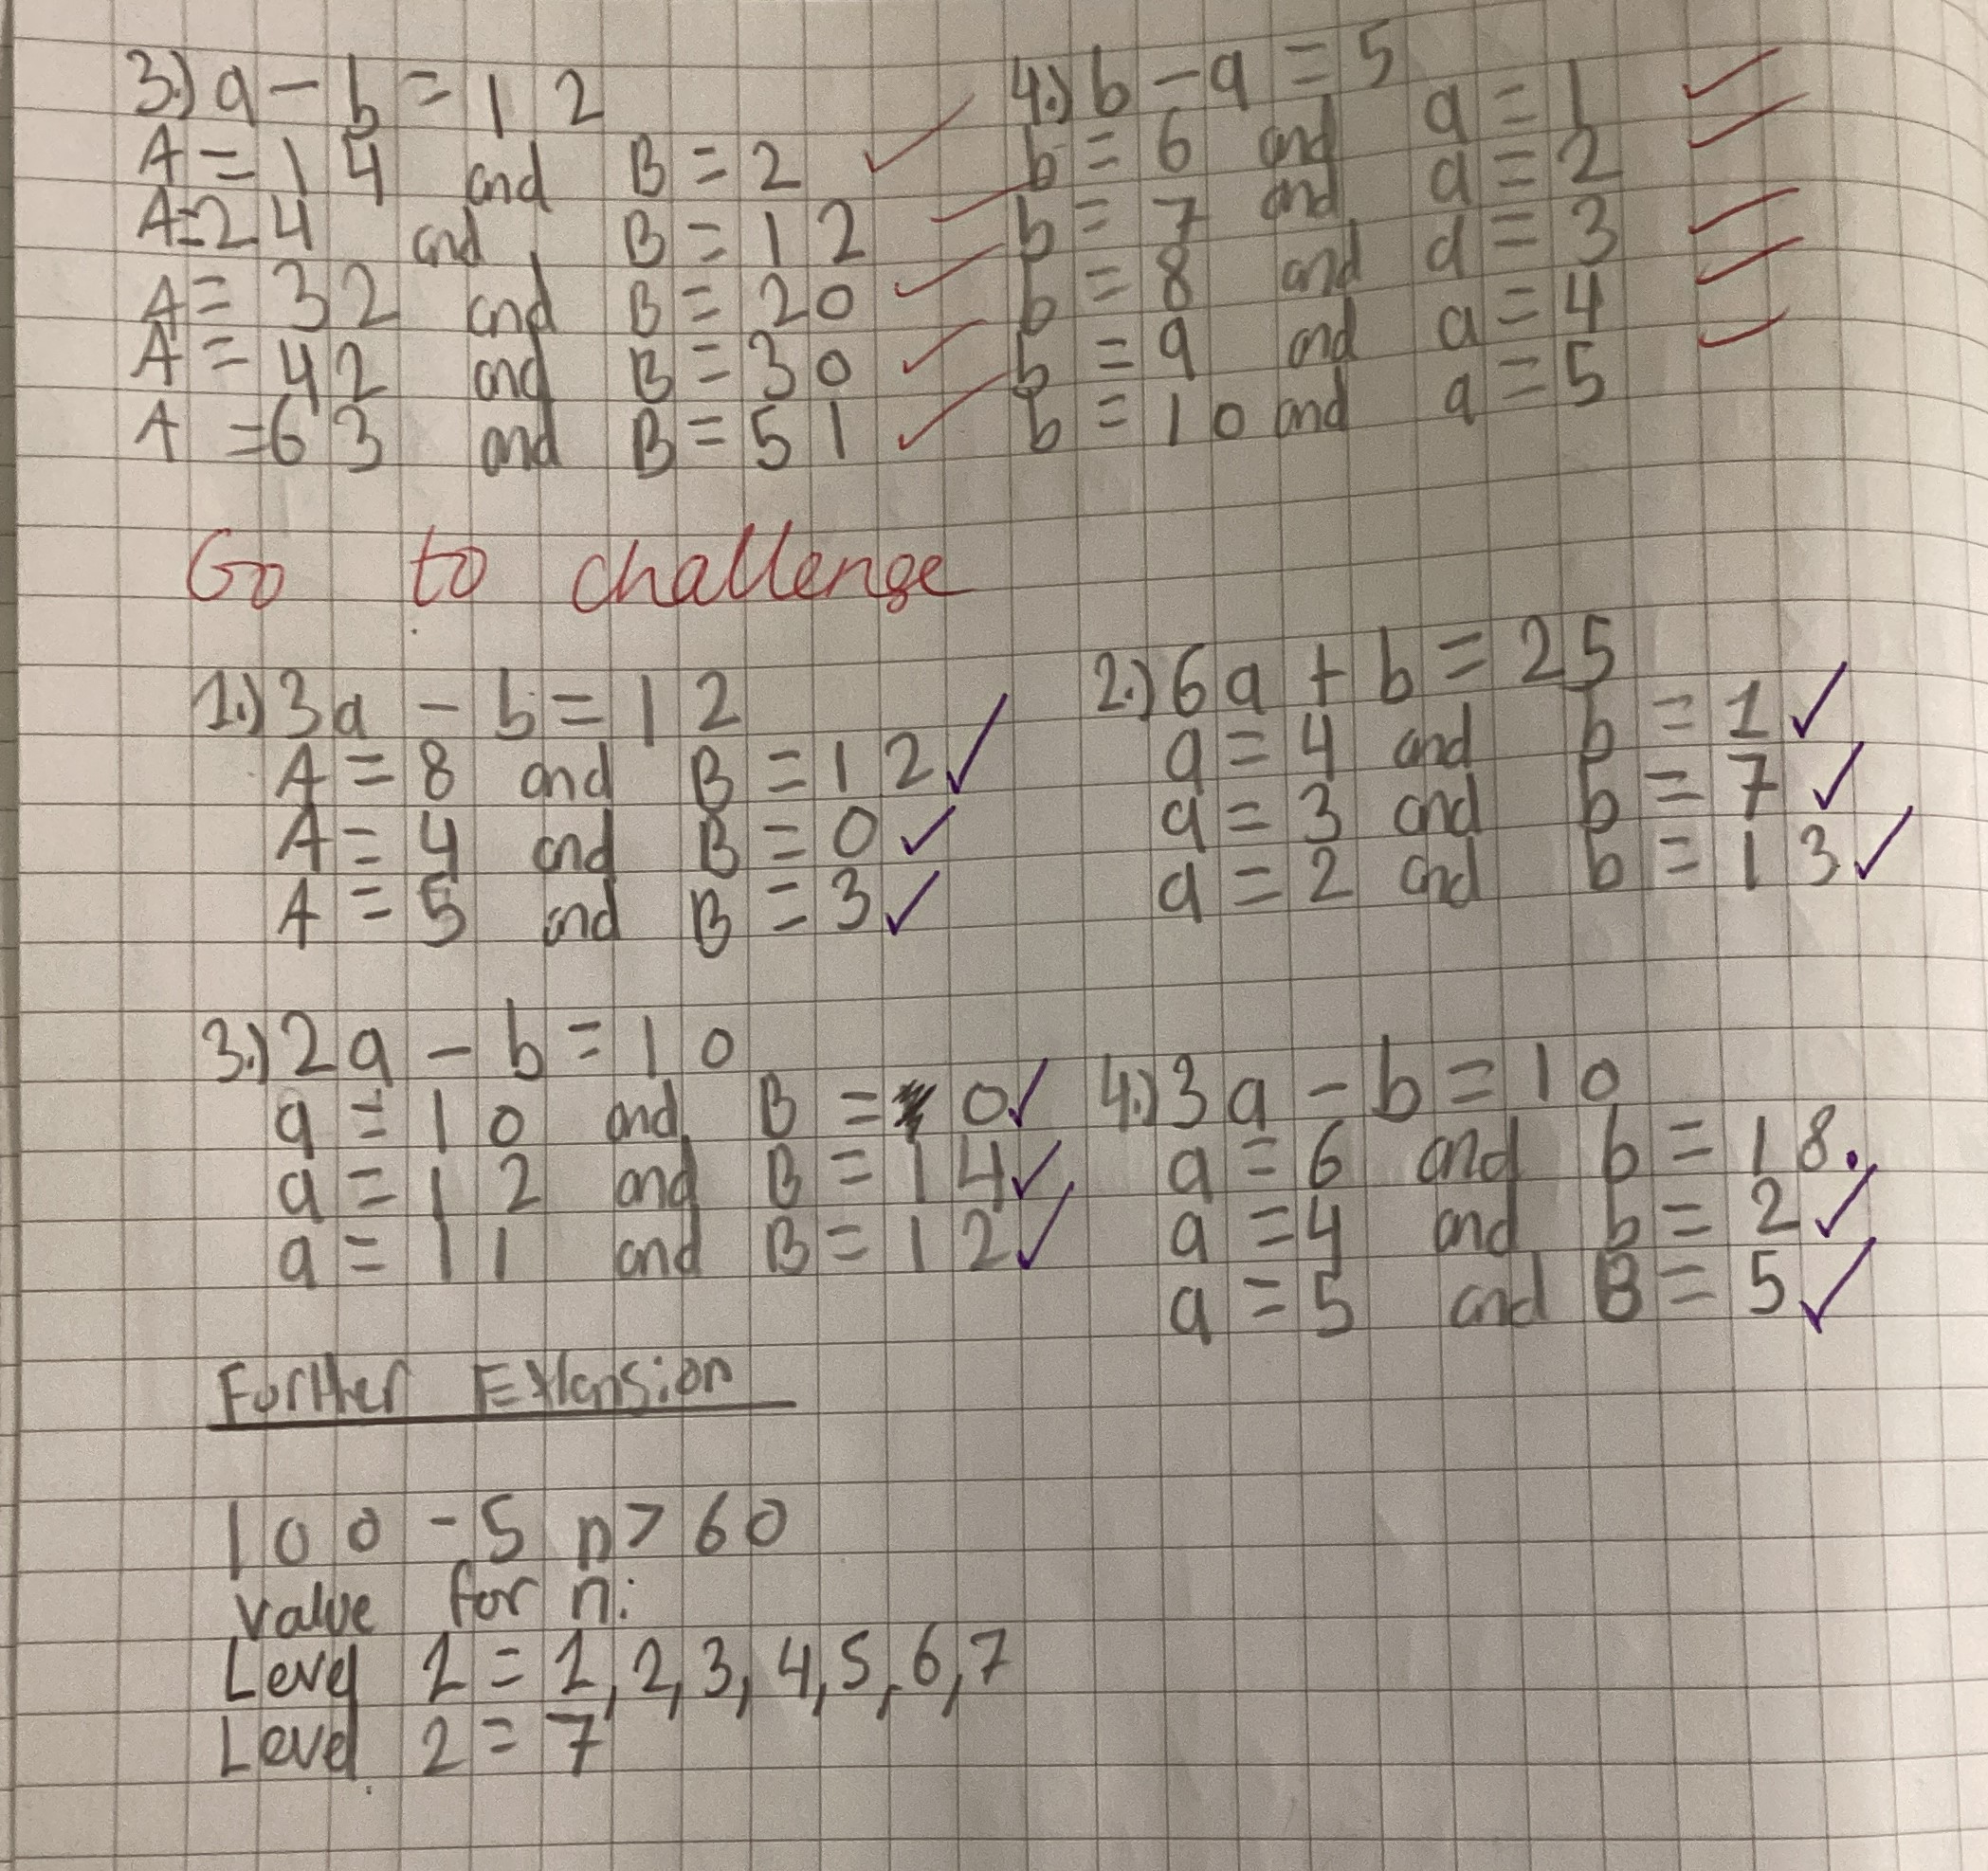 3.) a - b = 12
A = 14 and B = 2
A = 24 and B = 12
A = 32 and B = 20
A = 42 and B = 30
A = 63 and B = 51
4.) b - a = 5
b = 6 and a = 1
b = 7 and a = 2
b = 8 and a = 3
b = 9 and a = 4
b = 10 and a = 5
Go to challenge
1.) 3a - b = 12
A = 8 and B = 12
A = 4 and B = 0
A = 5 and B = 3
2.) 6a + b = 25
a = 4 and b = 1
a = 3 and b = 7
a = 2 and b = 13
3.) 2a - b = 10
a = 10 and B = 0
a = 12 and B = 14
a = 11 and B = 12
4.) 3a - b = 10
a = 6 and b = 18.
a = 4 and b = 2
a = 5 and B = 5
Further Extension
100 - 5n > 60
Value for n:
Level 1 = 1, 2, 3, 4, 5, 6, 7
Level 2 = 7